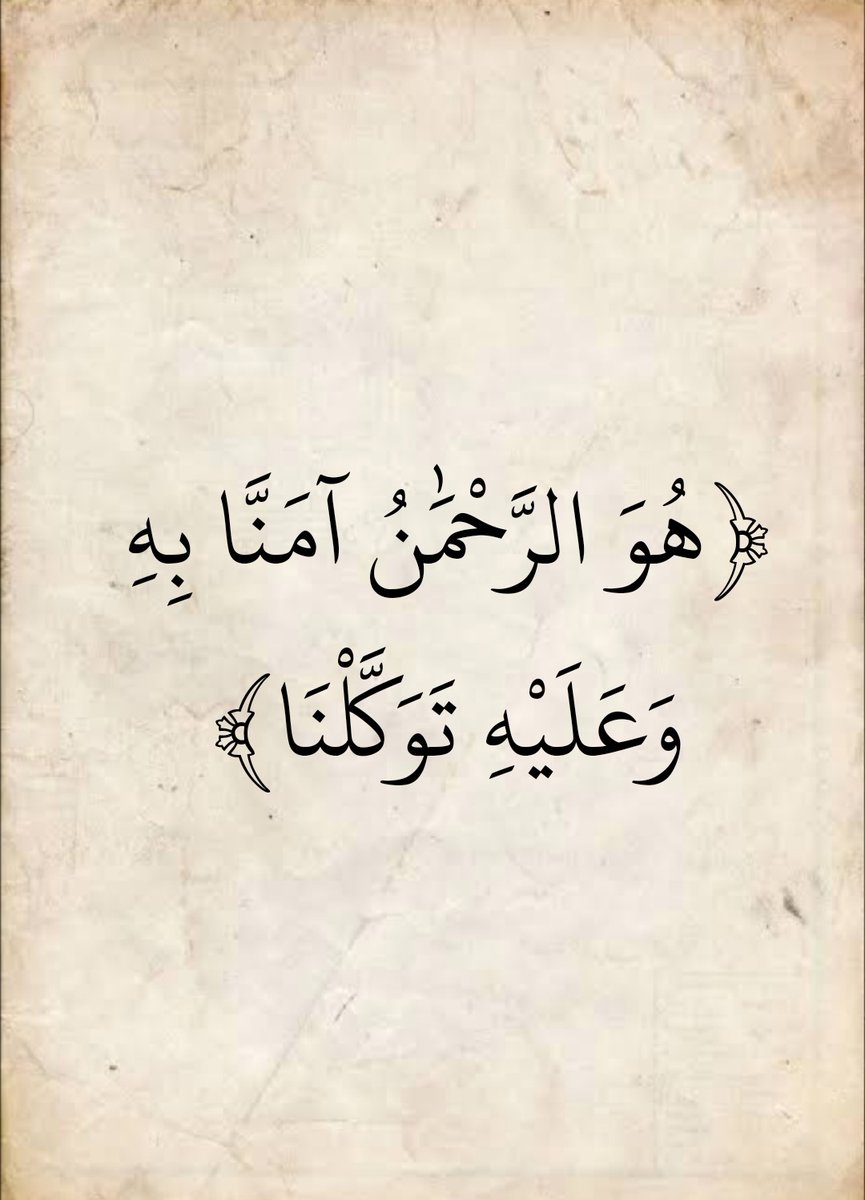 ﴿هُوَ الرَّحْمَٰنُ آمَنَّا بِهِ
وَعَلَيْهِ تَوَكَّلْنَا﴾